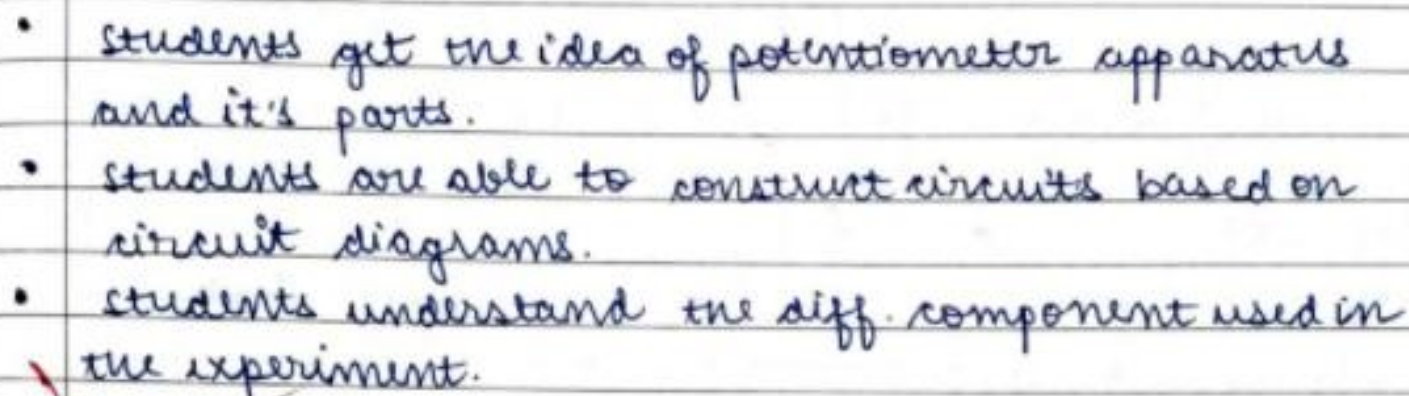 • students get the idea of potentiometer apparatus
and it's parts.
• students are able to construct circuits based on
circuit diagrams.
• students understand the diff. component used in
the experiment.